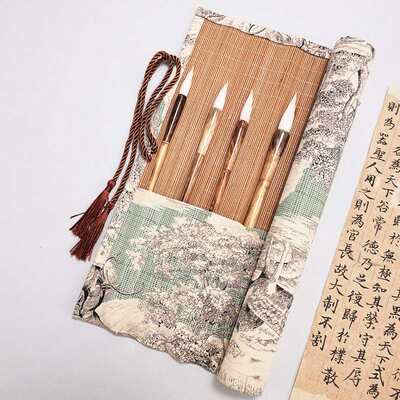 於無極知其榮守其辱
為天下谷常德乃足復歸於樸散
則為器聖人用之則為官長故大制不割